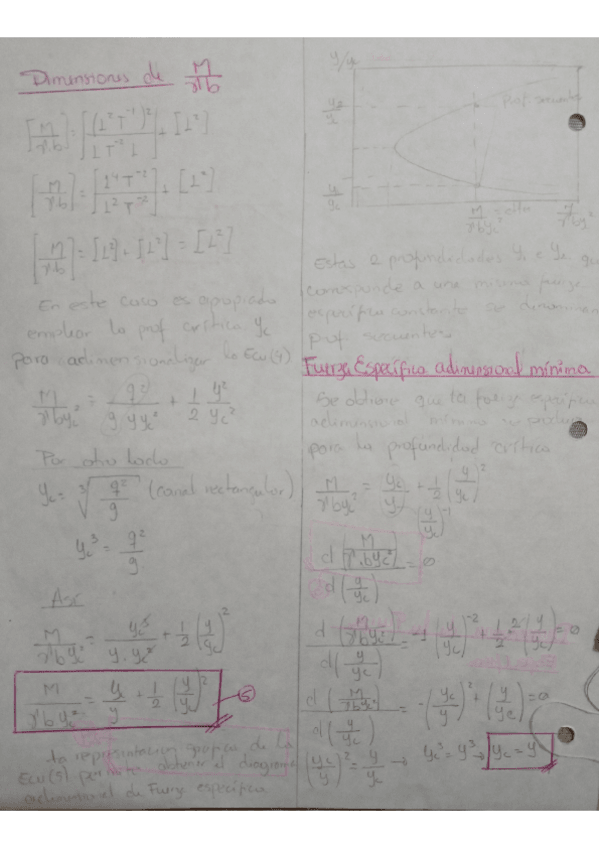 Dimensiones de M/γb
[M/γ.b] = [(L²T⁻¹)²/LT⁻²L] + [L²]
[M/γb] = [L⁴T⁻²/L²T⁻²] + [L²]
[M/γb] = [L²] + [L²] = [L²]
En este caso es apropiado
emplear la prof crítica yc
para adimensionalizar la Ecu(4)
M/γbyc² = q²/g y yc² + 1/2 y²/yc²
Por otro lado
yc = ∛(q²/g) (canal rectangular)
yc³ = q²/g
Así
M/γbyc² = yc³/y.yc² + 1/2 (y/yc)²
M/γbyc² = yc/y + 1/2 (y/yc)² 5
la representacion gráfica de la
Ecu(5) permite obtener el diagrama
adimensional de Fuerza específica
y/yc
y2/yc
Prof. secuente
y1/yc
M/γbyc² = cte M/γbyc²
Estas 2 profundidades y1 e y2 que
corresponde a una misma fuerza
específica constante se denominan
prof secuentes
Fuerza Específica adimensional mínima
Se obtiene que la fuerza específica
adimensional mínima se produce
para la profundidad crítica
M/γbyc² = yc/y + 1/2 (y/yc)²
(y/yc)⁻¹
d(M/γ.byc²)/d(y/yc) = 0
d(M/γbyc²)/d(y/yc) = -1 (y/yc)⁻² + 1/2 2 (y/yc) = 0
d(M/γbyc²)/d(y/yc) = -(yc/y)² + (y/yc) = 0
(yc/y)² = y/yc → yc³ = y³ → yc = y